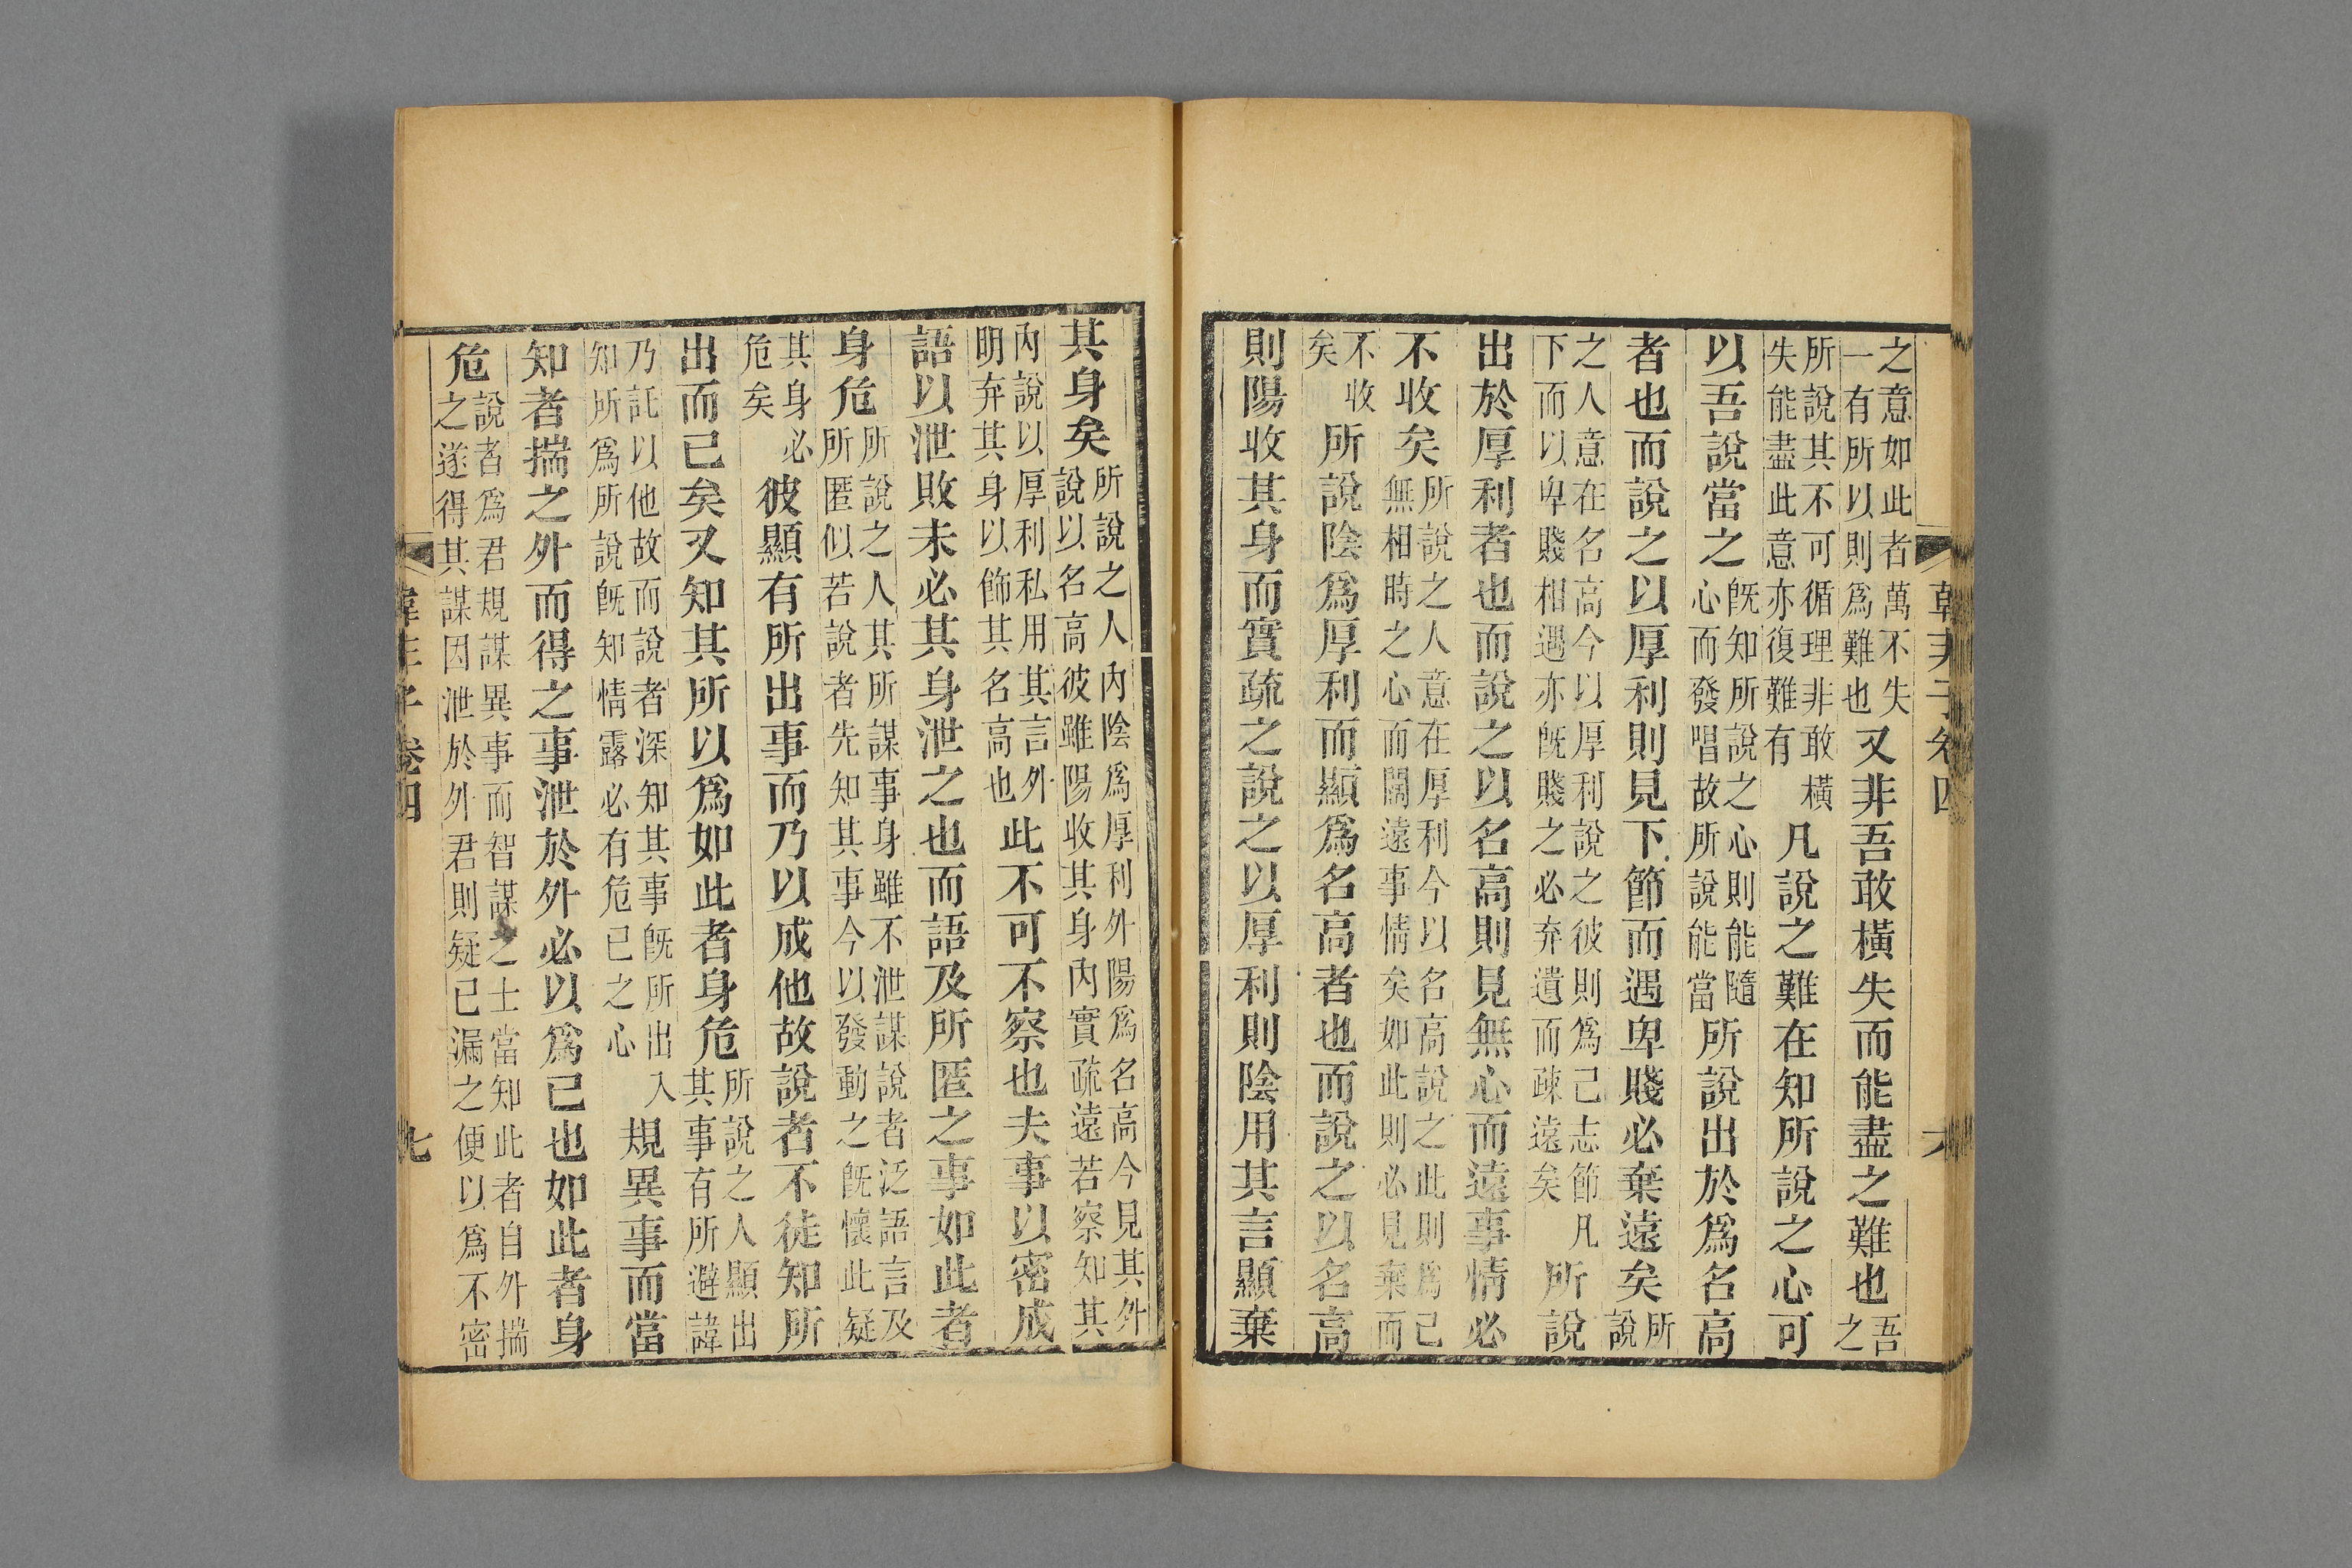 韓非子卷四　六
之意如此者萬不失
一有所以則爲難也
又非吾敢橫失而能盡之難也
吾
之
所說其不可循理非敢橫
失能盡此意亦復難有
凡說之難在知所說之心可
以吾說當之
旣知所說之心則能隨
心而發唱故所說能當
所說出於爲名高
者也而說之以厚利則見下節而遇卑賤必棄遠矣
所
說
之人意在名高今以厚利說之彼則爲己志節凡
下而以卑賤相遇亦旣賤之必弃遺而疎遠矣
所說
出於厚利者也而說之以名高則見無心而遠事情必
不收矣
所說之人意在厚利今以名高說之此則爲己
無相時之心而闊遠事情矣如此則必見棄而
不收
矣
所說陰爲厚利而顯爲名高者也而說之以名高
則陽收其身而實疏之說之以厚利則陰用其言顯棄
其身矣
所說之人內陰爲厚利外陽爲名高今見其外
說以名高彼雖陽收其身內實疏遠若察知其
內說以厚利私用其言外
明弃其身以飾其名高也
此不可不察也夫事以密成
語以泄敗未必其身泄之也而語及所匿之事如此者
身危
所說之人其所謀事身雖不泄謀說者泛語言及
所匿似若說者先知其事今以發動之旣懷此疑
其身必
危矣
彼顯有所出事而乃以成他故說者不徒知所
出而已矣又知其所以爲如此者身危
所說之人顯出
其事有所避諱
乃託以他故而說者深知其事旣所出入
知所爲所說旣知情露必有危已之心
規異事而當
知者揣之外而得之事泄於外必以爲己也如此者身
危
說者爲君規謀異事而智謀之士當知此者自外揣
之遂得其謀因泄於外君則疑己漏之便以爲不密
韓非子卷四　七